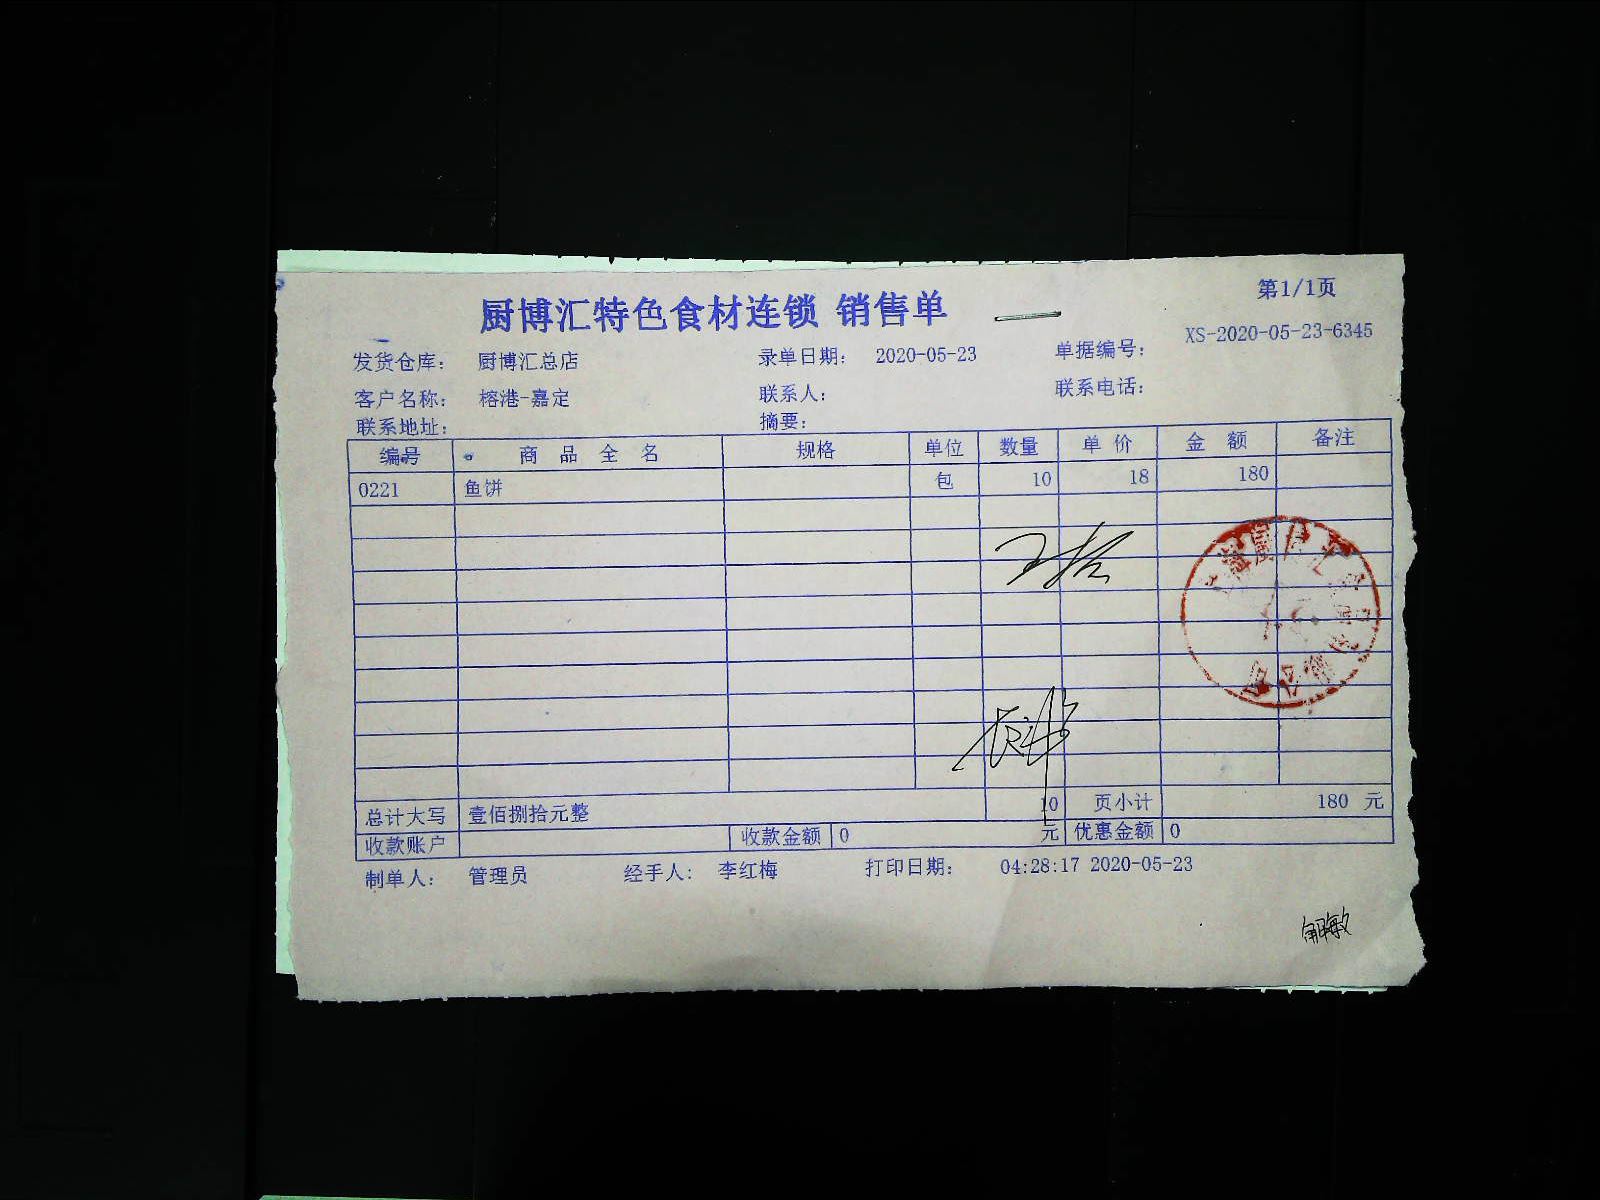 厨博汇特色食材连锁 销售单
第1/1页
发货仓库: 厨博汇总店 录单日期: 2020-05-23 单据编号: XS-2020-05-23-6345
客户名称: 榕港-嘉定 联系人: 联系电话:
联系地址: 摘要:
编号 商品全名 规格 单位 数量 单价 金额 备注
0221 鱼饼 包 10 18 180
总计大写 壹佰捌拾元整 10 页小计 180 元
收款账户 收款金额 0 元 优惠金额 0
制单人: 管理员 经手人: 李红梅 打印日期: 04:28:17 2020-05-23